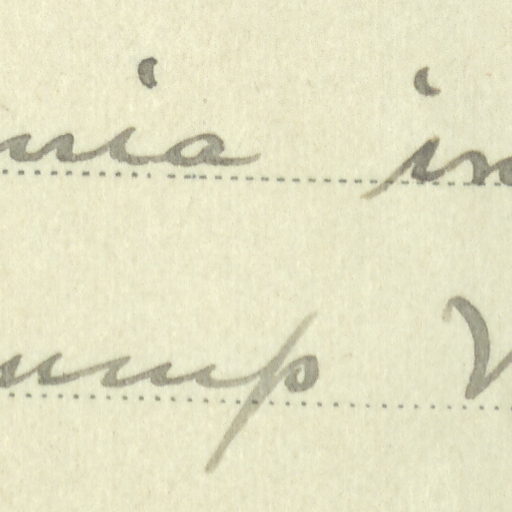 nia in
ump V